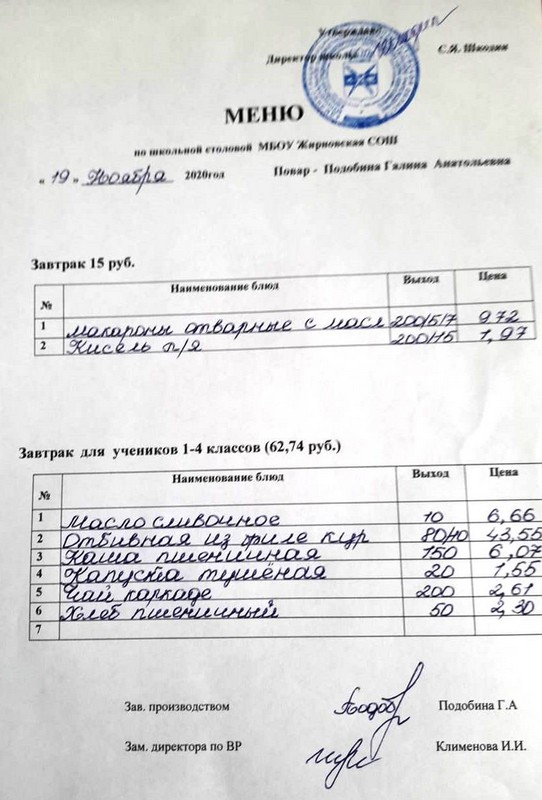 Утверждаю
Директор школы С.А. Шкодин
МЕНЮ
по школьной столовой МБОУ Жирновская СОШ
« 19 » Ноября 2020год Повар - Подобина Галина Анатольевна
Завтрак 15 руб.
№ Наименование блюд Выход Цена
1 Макароны отварные с масл 200/5/7 9 72
2 Кисель п/я 200/15 1,97
Завтрак для учеников 1-4 классов (62,74 руб.)
№ Наименование блюд Выход Цена
1 Масло сливочное 10 6,66
2 Отбивная из филе кур 80/40 43,55
3 Каша пшеничная 150 6,07
4 Капуста тушёная 20 1,55
5 Чай каркаде 200 2,61
6 Хлеб пшеничный 50 2,30
7
Зав. производством Подобина Г.А
Зам. директора по ВР Клименова И.И.